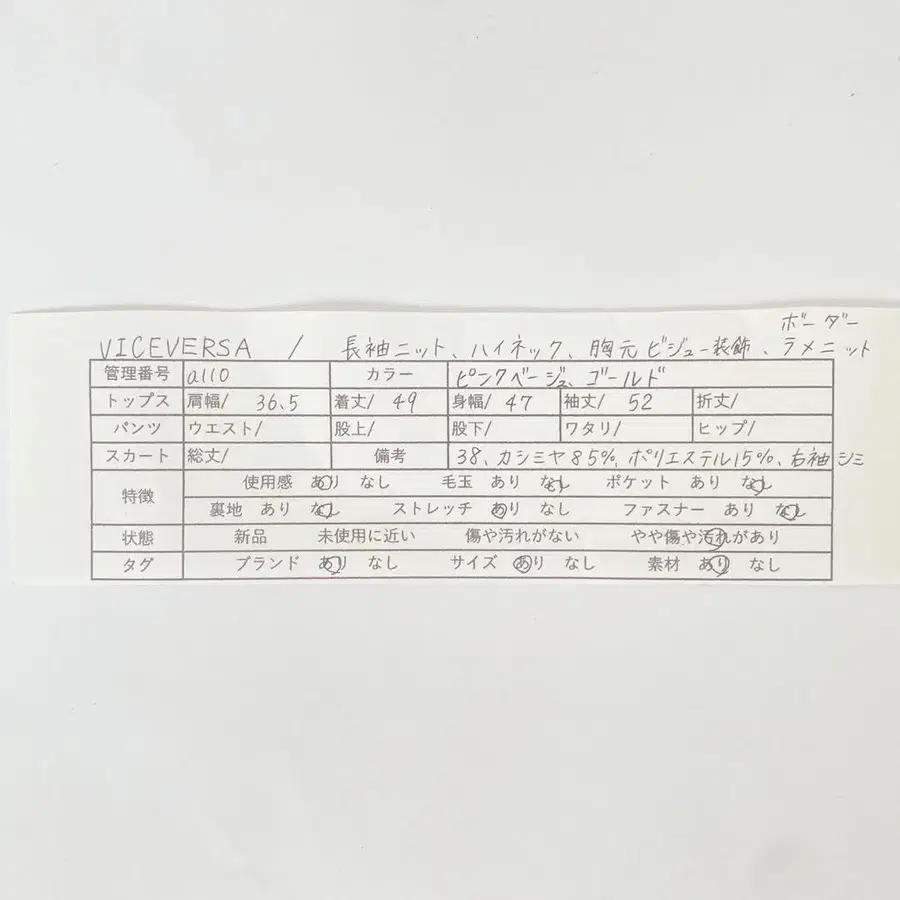 ボーダー
VICEVERSA / 長袖ニット、ハイネック、胸元ビジュー装飾、ラメニット
管理番号 a110 カラー ピンクベージュ、ゴールド
トップス 肩幅/ 36.5 着丈/ 49 身幅/ 47 袖丈/ 52 折丈/
パンツ ウエスト/ 股上/ 股下/ ワタリ/ ヒップ/
スカート 総丈/ 備考 38、カシミヤ85%、ポリエステル15%、右袖シミ
特徴 使用感 あり なし 毛玉 あり なし ポケット あり なし
裏地 あり なし ストレッチ あり なし ファスナー あり なし
状態 新品 未使用に近い 傷や汚れがない やや傷や汚れがあり
タグ ブランド あり なし サイズ あり なし 素材 あり なし